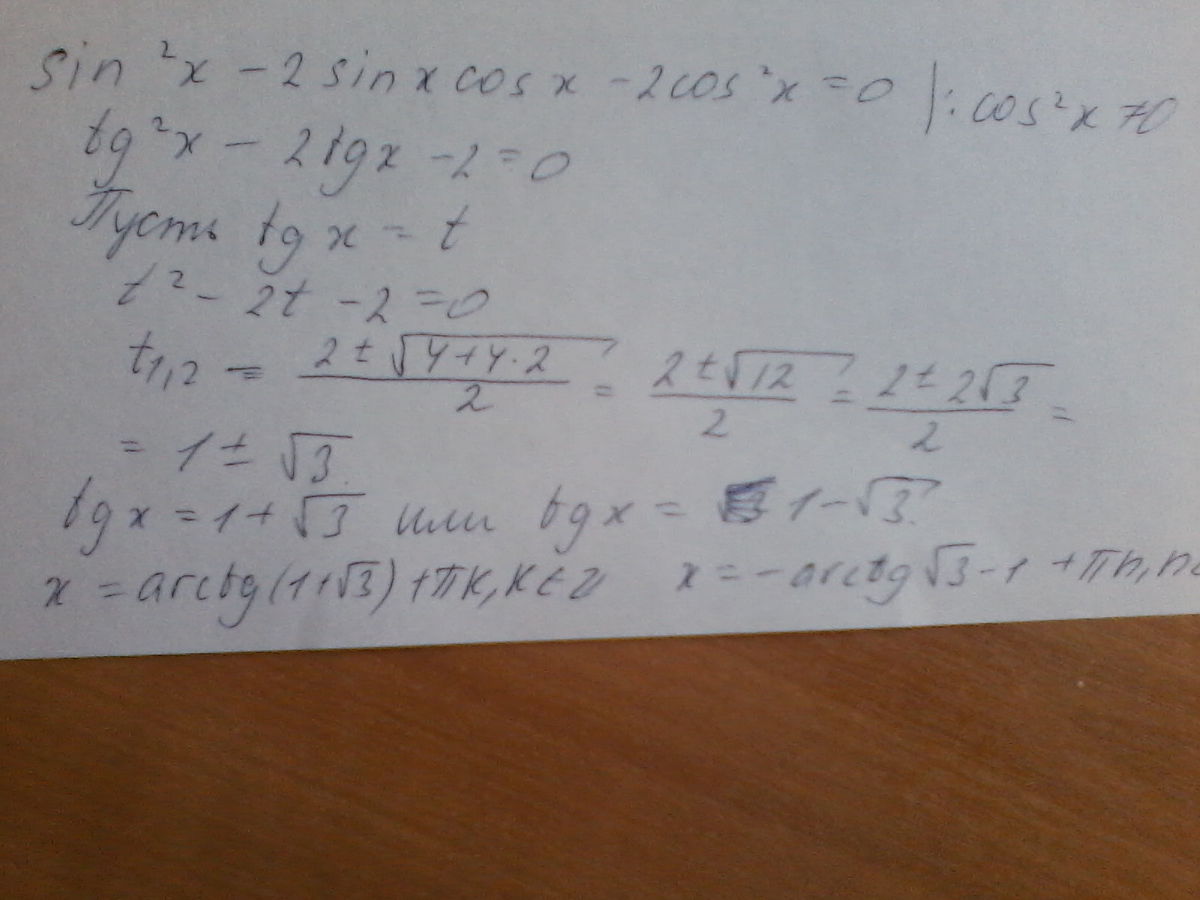 sin²x − 2 sin x cos x − 2cos²x = 0 |: cos²x ≠ 0
tg²x − 2tgx − 2 = 0
Пусть tg x = t
t² − 2t − 2 = 0
t₁,₂ = (2 ± √(4+4·2))/2 = (2 ± √12)/2 = (2 ± 2√3)/2 =
= 1 ± √3
tg x = 1 + √3 или tg x = 1 − √3
x = arctg(1+√3) + πk, k ∈ Z x = − arctg √3 − 1 + πn, n ∈